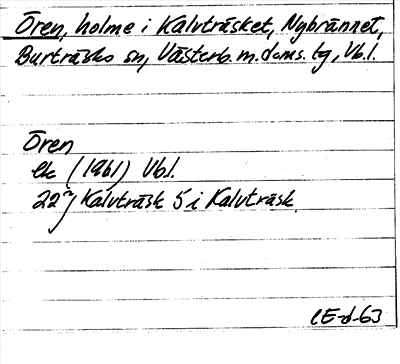 Ören, holme i Kalvträsket, Nybrännet,
Burträsks sn, Västerb. m. doms. tg, Vb.l.
Ören
ek (1961) Vb l.
Kalvträsk 5 i Kalvträsk